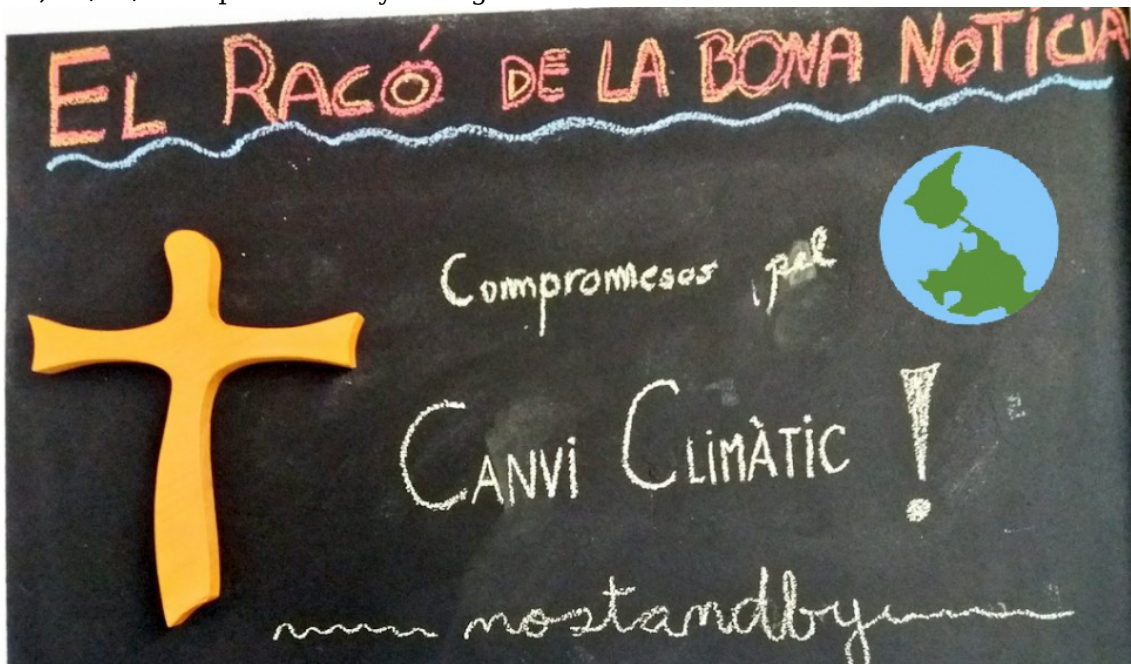 EL RACÓ DE LA BONA NOTÍCIA
Compromesos pel
CANVI CLIMÀTIC!
nostandby